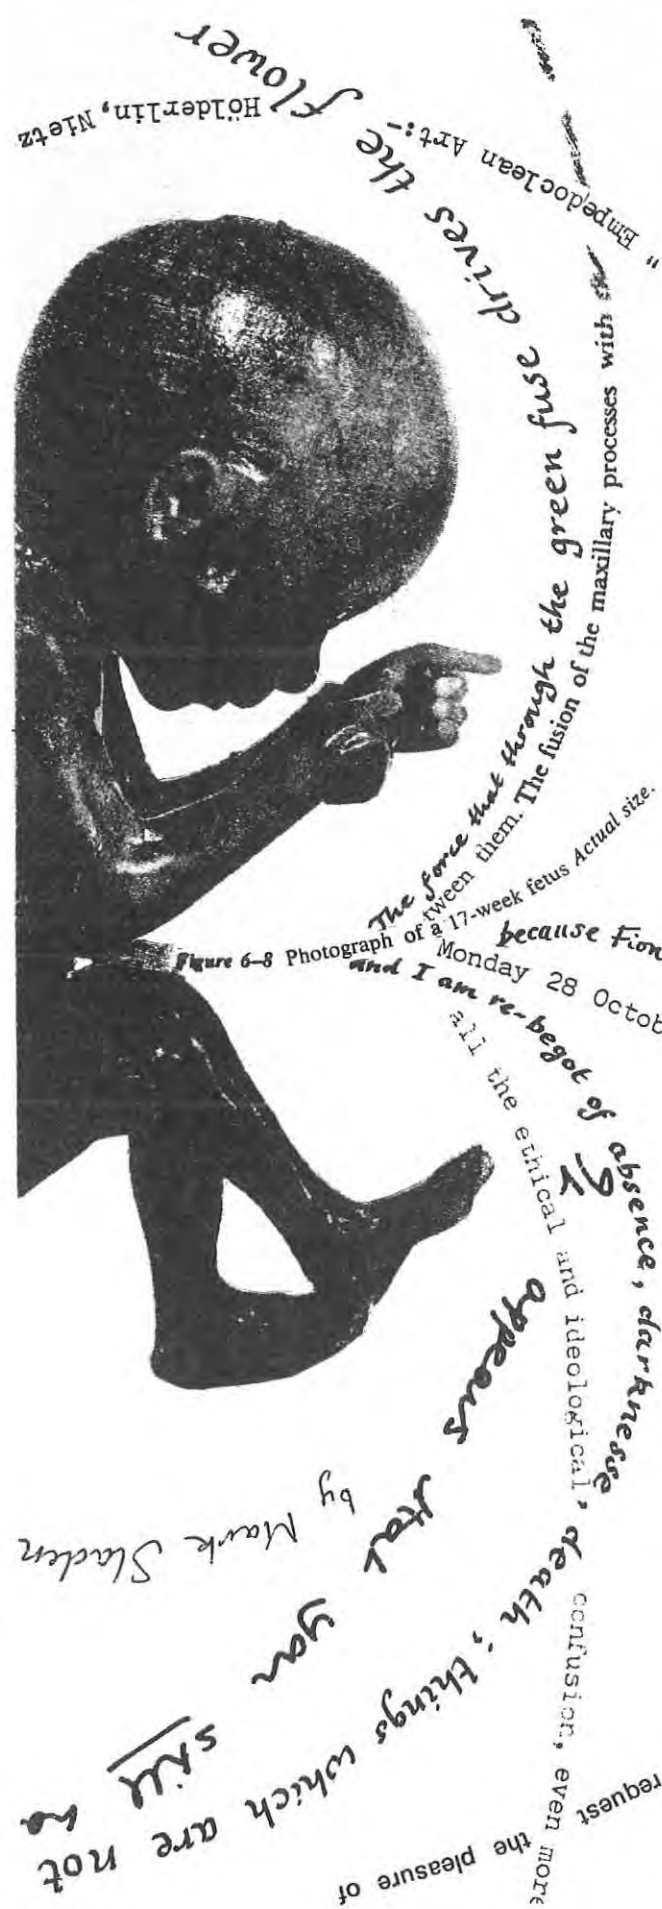 Hölderlin, Nietz
"Empedoclean Art:-
The force that through the green fuse drives the flower
tween them. The fusion of the maxillary processes with
Figure 6–8 Photograph of a 17-week fetus Actual size.
because Fion
Monday 28 Octob
and I am re-begot of absence, darknesse, death; things which are not
all the ethical and ideological confusion, even more
appears that you still ha
by Mark Sladen
request the pleasure of